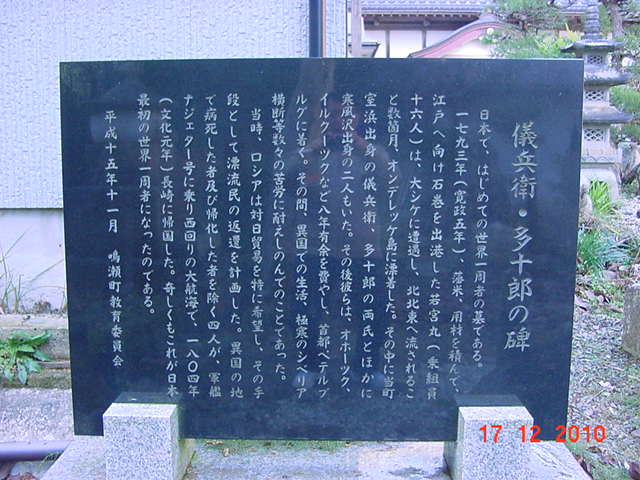 儀兵衛・多十郎の碑
日本で、はじめての世界一周者の墓である。
一七九三年（寛政五年）、藩米、用材を積んで、
江戸へ向け石巻を出港した若宮丸（乗組員
十六人）は、大シケに遭遇し、北北東へ流されるこ
と数箇月、オンデレツケ島に漂着した。その中に当町
室浜出身の儀兵衛、多十郎の両氏とほかに
寒風沢出身の二人もいた。その後彼らは、オホーツク、
イルクーツクなど八年有余を費やし、首都ペテルブ
ルグに着く。その間、異国での生活、極寒のシベリア
横断等数々の苦労に耐えしのんでのことであった。
当時、ロシアは対日貿易を特に希望し、その手
段として漂流民の返還を計画した。異国の地
で病死した者及び帰化した者を除く四人が、軍艦
ナジェター号に乗り西回りの大航海で、一八〇四年
（文化元年）長崎に帰国した。奇しくもこれが日本
最初の世界一周者になったのである。
平成十五年十一月　鳴瀬町教育委員会
17 12 2010